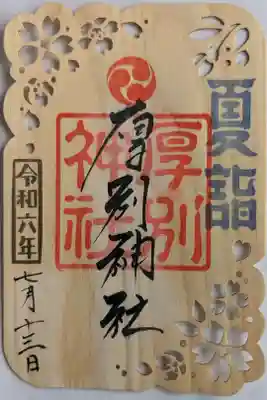 夏詣
厚別神社
厚別
神社
令和六年
七月十三日